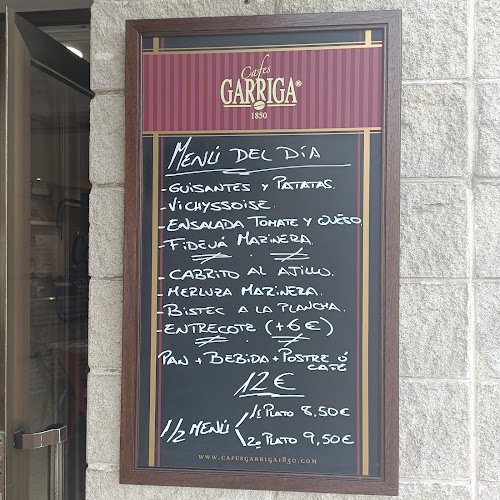 Cafes
GARRIGA®
1850
MENÚ DEL DÍA
- GUISANTES Y PATATAS.
- VICHYSSOISE.
- ENSALADA TOMATE Y QUESO.
- FIDEUÁ MARINERA.
- CABRITO AL AJILLO.
- MERLUZA MARINERA.
- BISTEC A LA PLANCHA.
- ENTRECOTE (+6€)
PAN + BEBIDA + POSTRE Ó
CAFÉ
12€
1/2 MENÚ
1º PLATO 8,50€
2º PLATO 9,50€
WWW.CAFESGARRIGA1850.COM